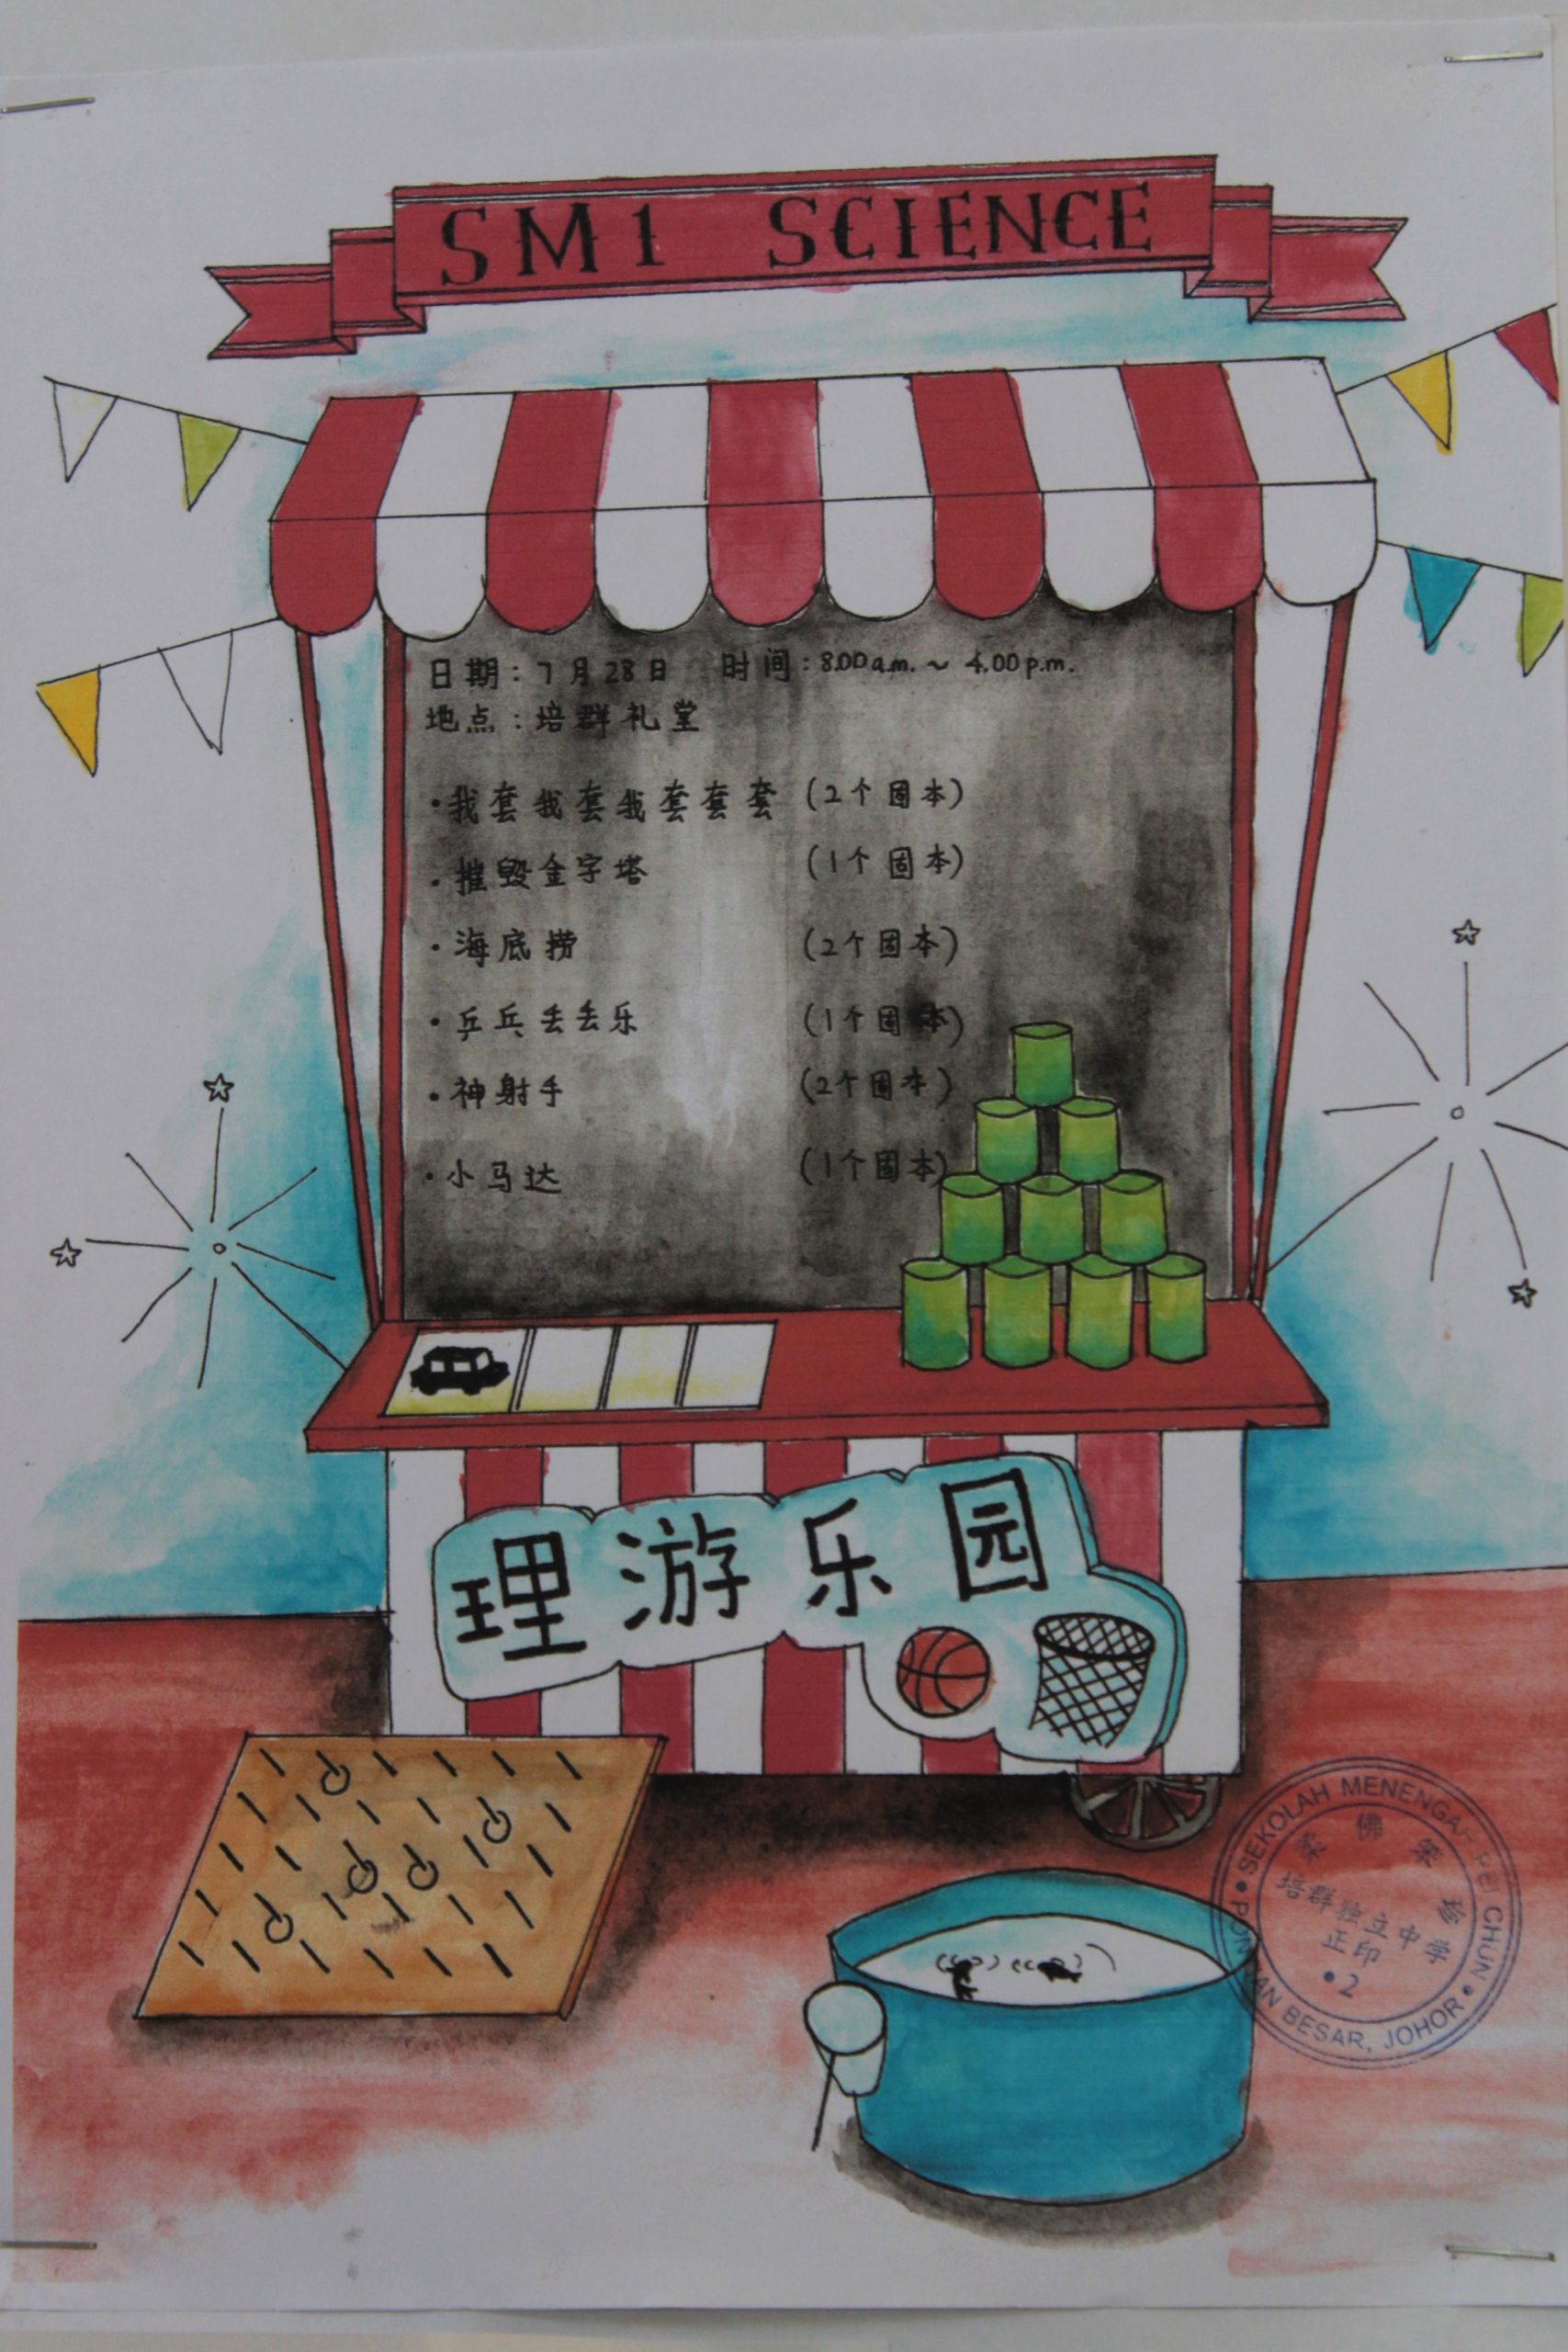 SM1 SCIENCE
日期：7月28日 时间：8.00a.m. ~ 4.00p.m.
地点：培群礼堂
·我套我套我套套套 (2个固本)
·摧毁金字塔 (1个固本)
·海底捞 (2个固本)
·乒乓丢丢乐 (1个固本)
·神射手 (2个固本)
·小马达 (1个固本)
理游乐园
SEKOLAH MENENGAH PEI CHUN
培群独立中学
正印
•2
BESAR, JOHOR